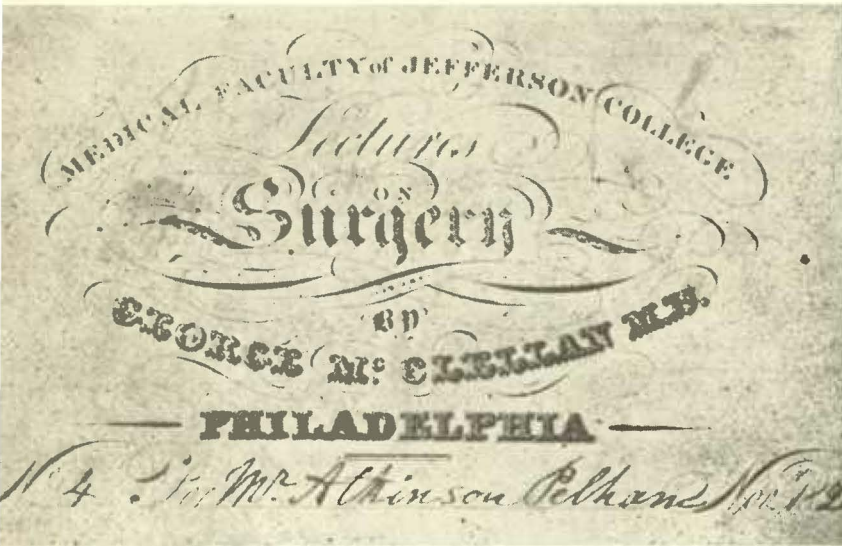 MEDICAL FACULTY of JEFFERSON COLLEGE
Lectures
ON
Surgery
BY
GEORGE Mc CLELLAN M.D.
PHILADELPHIA
No 4 For Mr. Atkinson Pelham